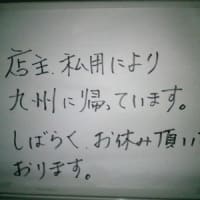 店主、私用により
九州に帰っています。
しばらく、お休み頂いて
おります。